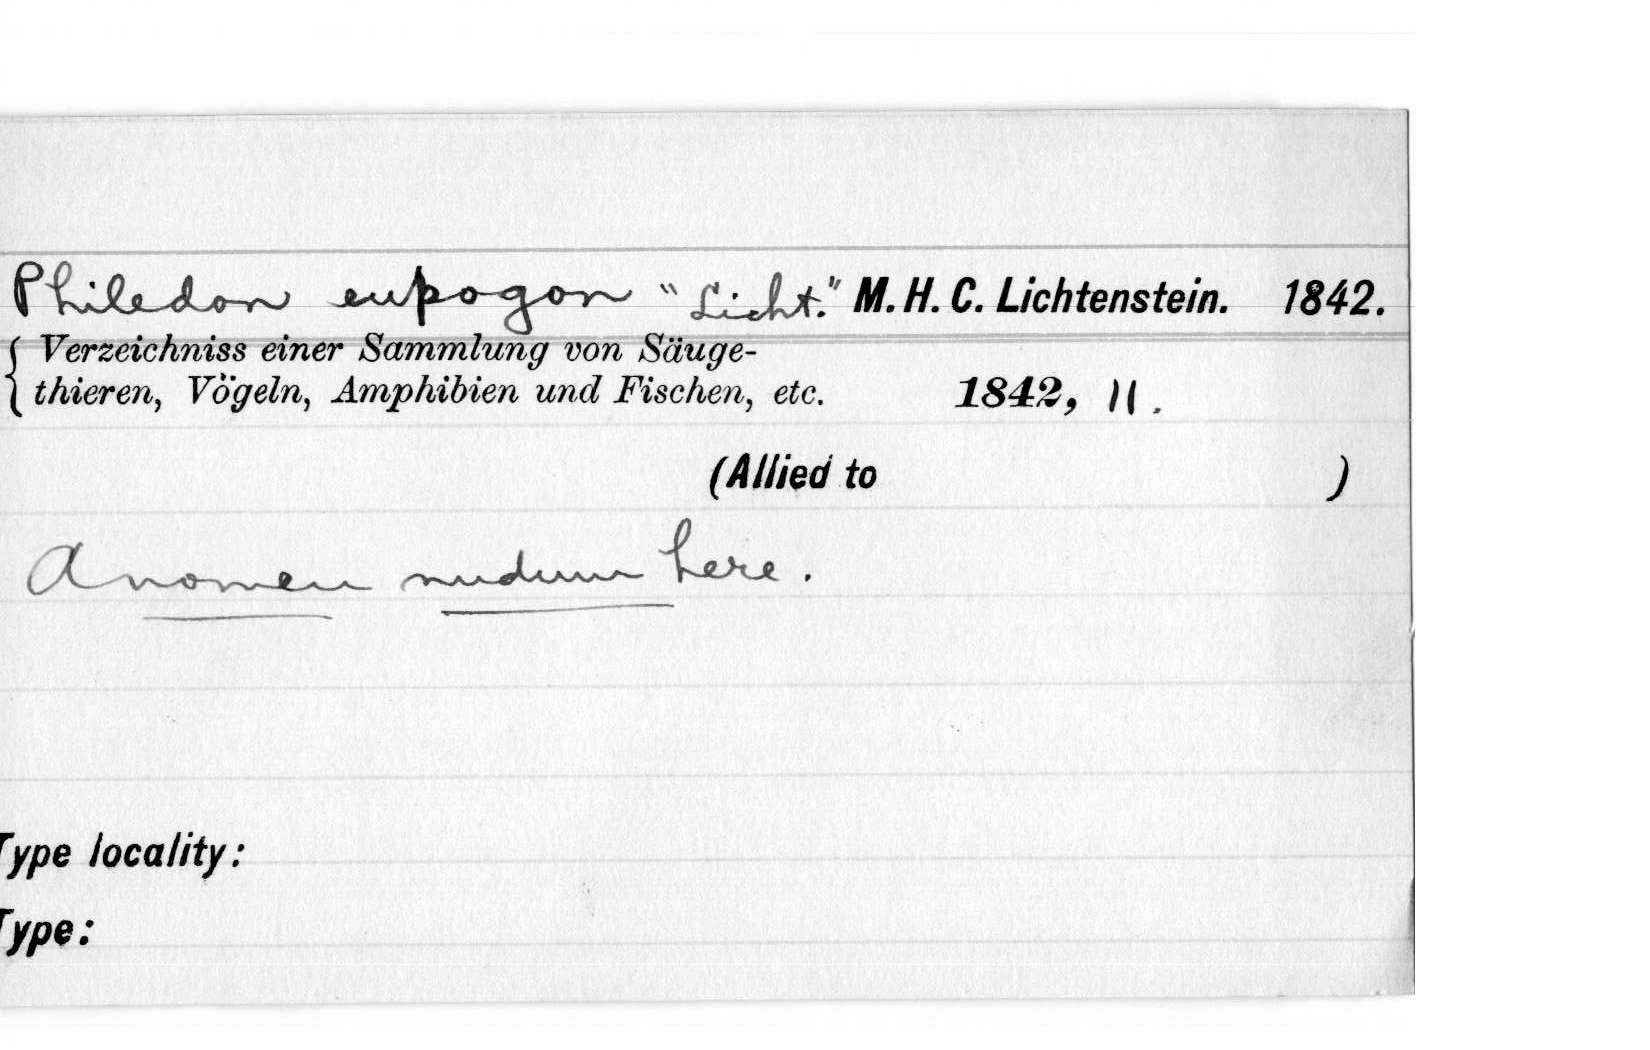 Philedon eupogon "Licht." M. H. C. Lichtenstein. 1842.
Verzeichniss einer Sammlung von Säuge-
thieren, Vögeln, Amphibien und Fischen, etc. 1842, 11.
(Allied to )
A nomen nudum here.
Type locality:
Type: